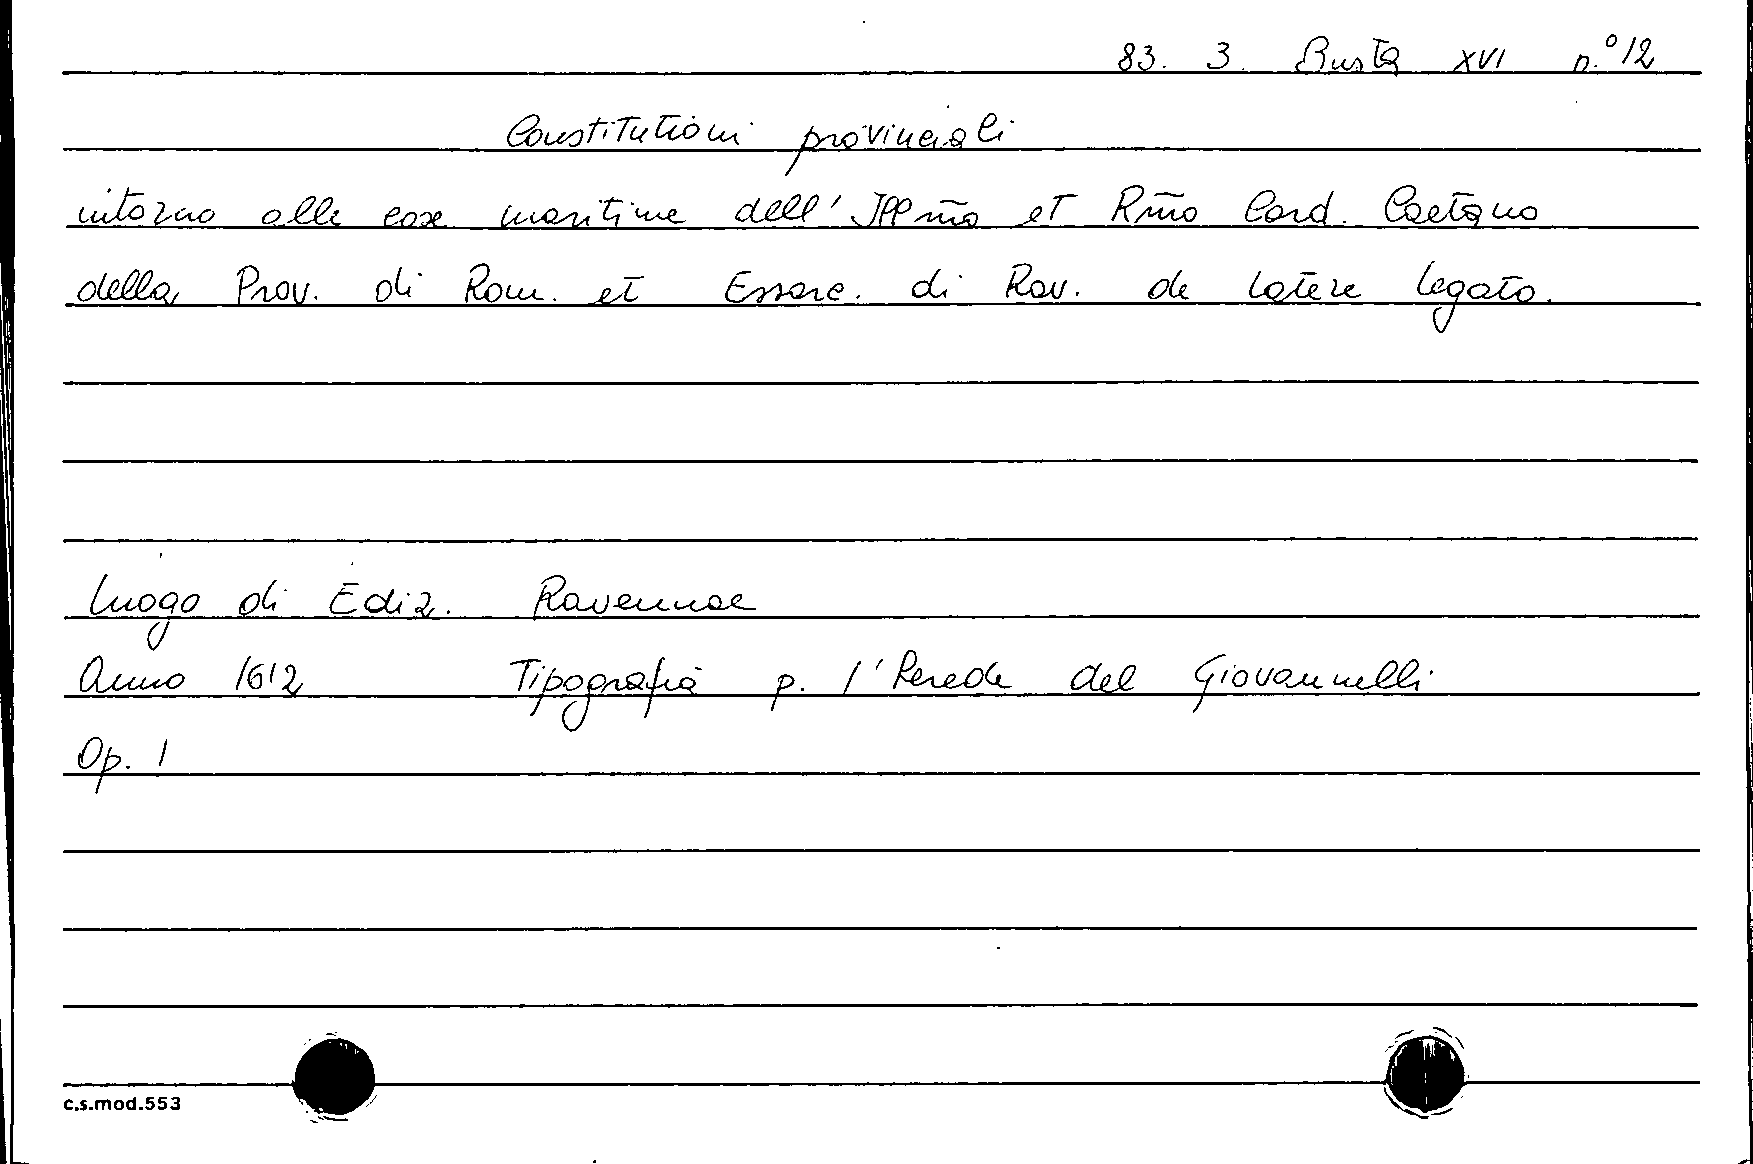 83. 3. Busta XVI n.° 12
Constitutioni provinciali
intorno alle cose maritime dell' Ill.mo et R.mo Card. Caetano
della Prov. di Rom. et Essarc. di Rav. de latere legato.
Luogo di Ediz. Ravennae
Anno 1612 Tipografia p. l'Herede del Giovannelli
Op. 1
c.s.mod.553